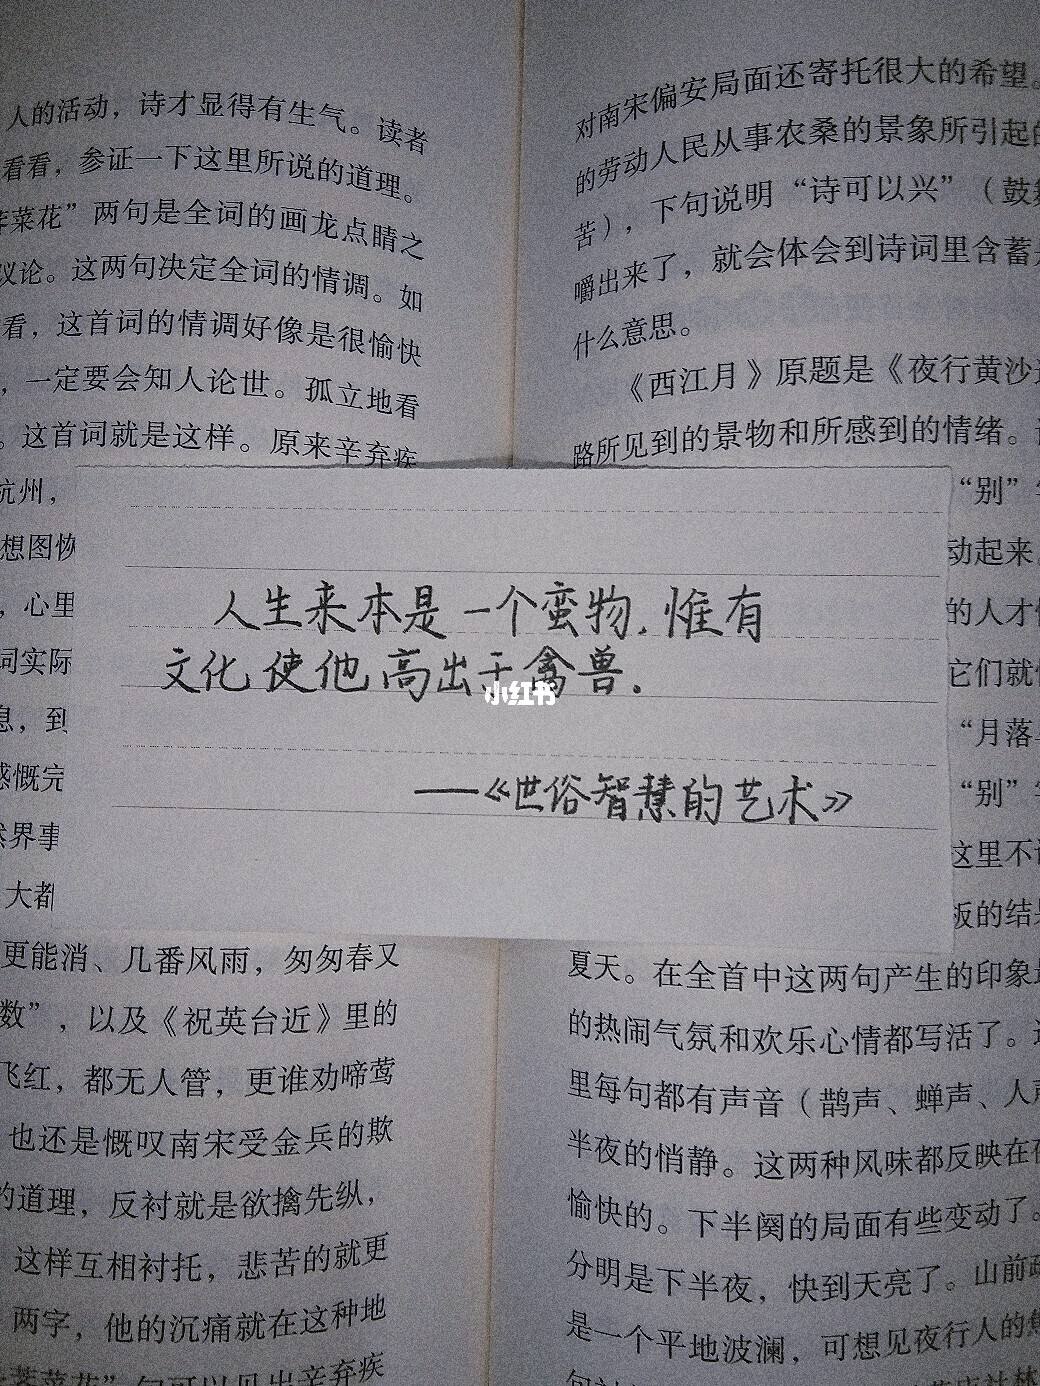 人的活动，诗才显得有生气。读者
看看，参证一下这里所说的道理。
荠菜花”两句是全词的画龙点睛之
议论。这两句决定全词的情调。如
看，这首词的情调好像是很愉快
，一定要会知人论世。孤立地看
。这首词就是这样。原来辛弃疾
杭州，
想图恢
，心里
词实际
息，到
感慨完
然界事
大都
更能消、几番风雨，匆匆春又
数”，以及《祝英台近》里的
飞红，都无人管，更谁劝啼莺
也还是慨叹南宋受金兵的欺
的道理，反衬就是欲擒先纵，
这样互相衬托，悲苦的就更
两字，他的沉痛就在这种地
荠菜花”句可以见出辛弃疾
对南宋偏安局面还寄托很大的希望。
的劳动人民从事农桑的景象所引起的
苦），下句说明“诗可以兴”（鼓舞
嚼出来了，就会体会到诗词里含蓄
什么意思。
《西江月》原题是《夜行黄沙道
路所见到的景物和所感到的情绪。
“别”字
动起来。
的人才
它们就
“月落
“别”字
这里不
板的结果
夏天。在全首中这两句产生的印象
的热闹气氛和欢乐心情都写活了。
里每句都有声音（鹊声、蝉声、人声
半夜的悄静。这两种风味都反映在
愉快的。下半阕的局面有些变动了。
分明是下半夜，快到天亮了。山前
是一个平地波澜，可想见夜行人的
人生来本是一个蛮物，惟有
文化使他高出于禽兽．
——《世俗智慧的艺术》
小红书